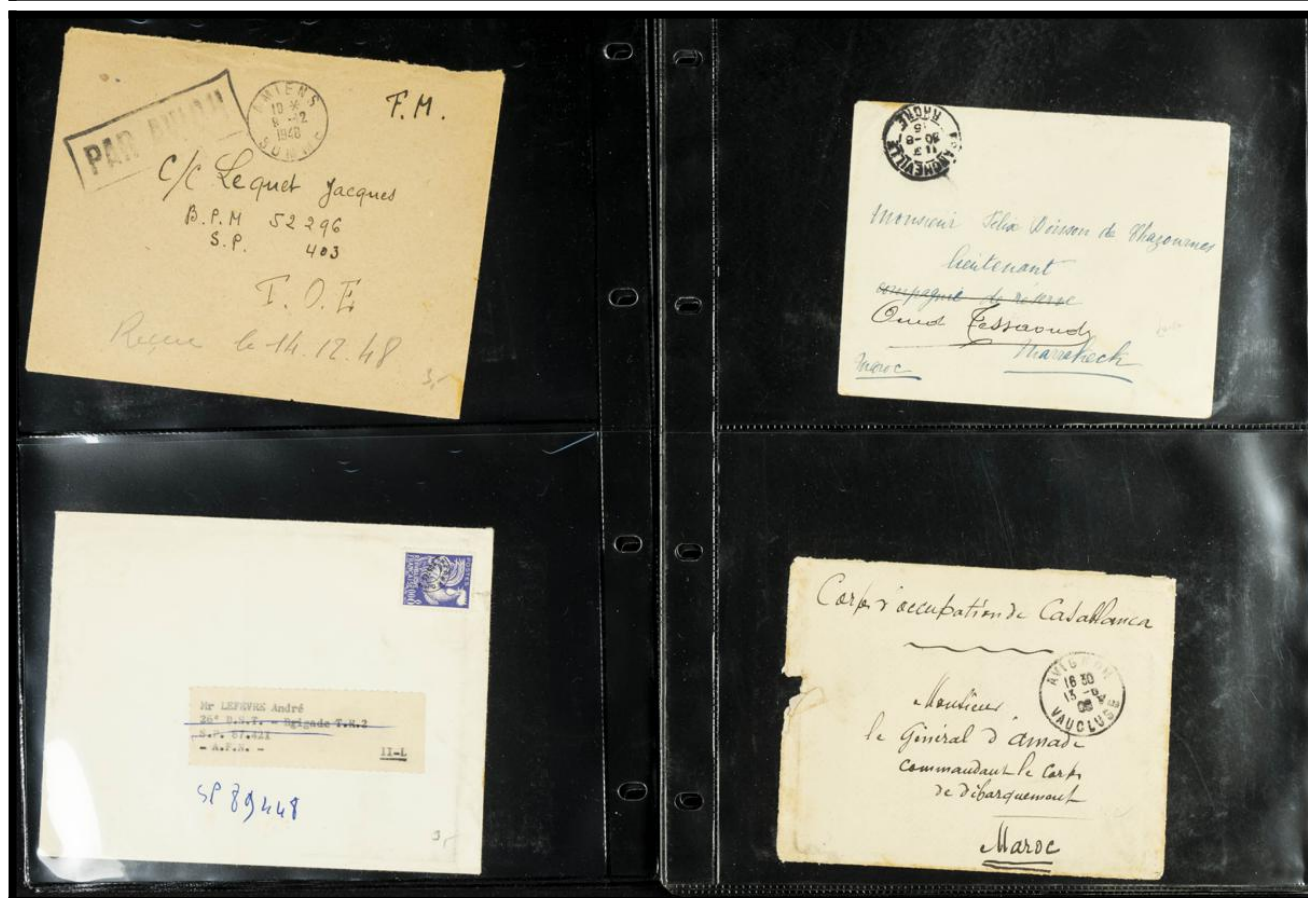 PAR AVION
AMIENS
10 *
8 -12
1948
SOMME
F.M.
C/C Lequet Jacques
B.P.M 52296
S.P. 403
T.O.E
Reçue le 14.12.48
3,-
FRANCHEVILLE
11 3
30 -8
15
RHONE
Monsieur Félix de
lieutenant
compagnie de réserve
Oued Tessaoudy
Marrakech
Maroc
POSTES
FRANÇAISE
Mr LEFEVRE André
26° B.S.T. - Brigade T.H.2
S.P. 87.421
- A.F.N. -
II-L
SP 89448
3,-
Corps d'occupation de Casablanca
AVIGNON
16 30
13 -6
08
VAUCLUSE
Monsieur
le Général d'Amade
commandant le Corps
de débarquement
Maroc